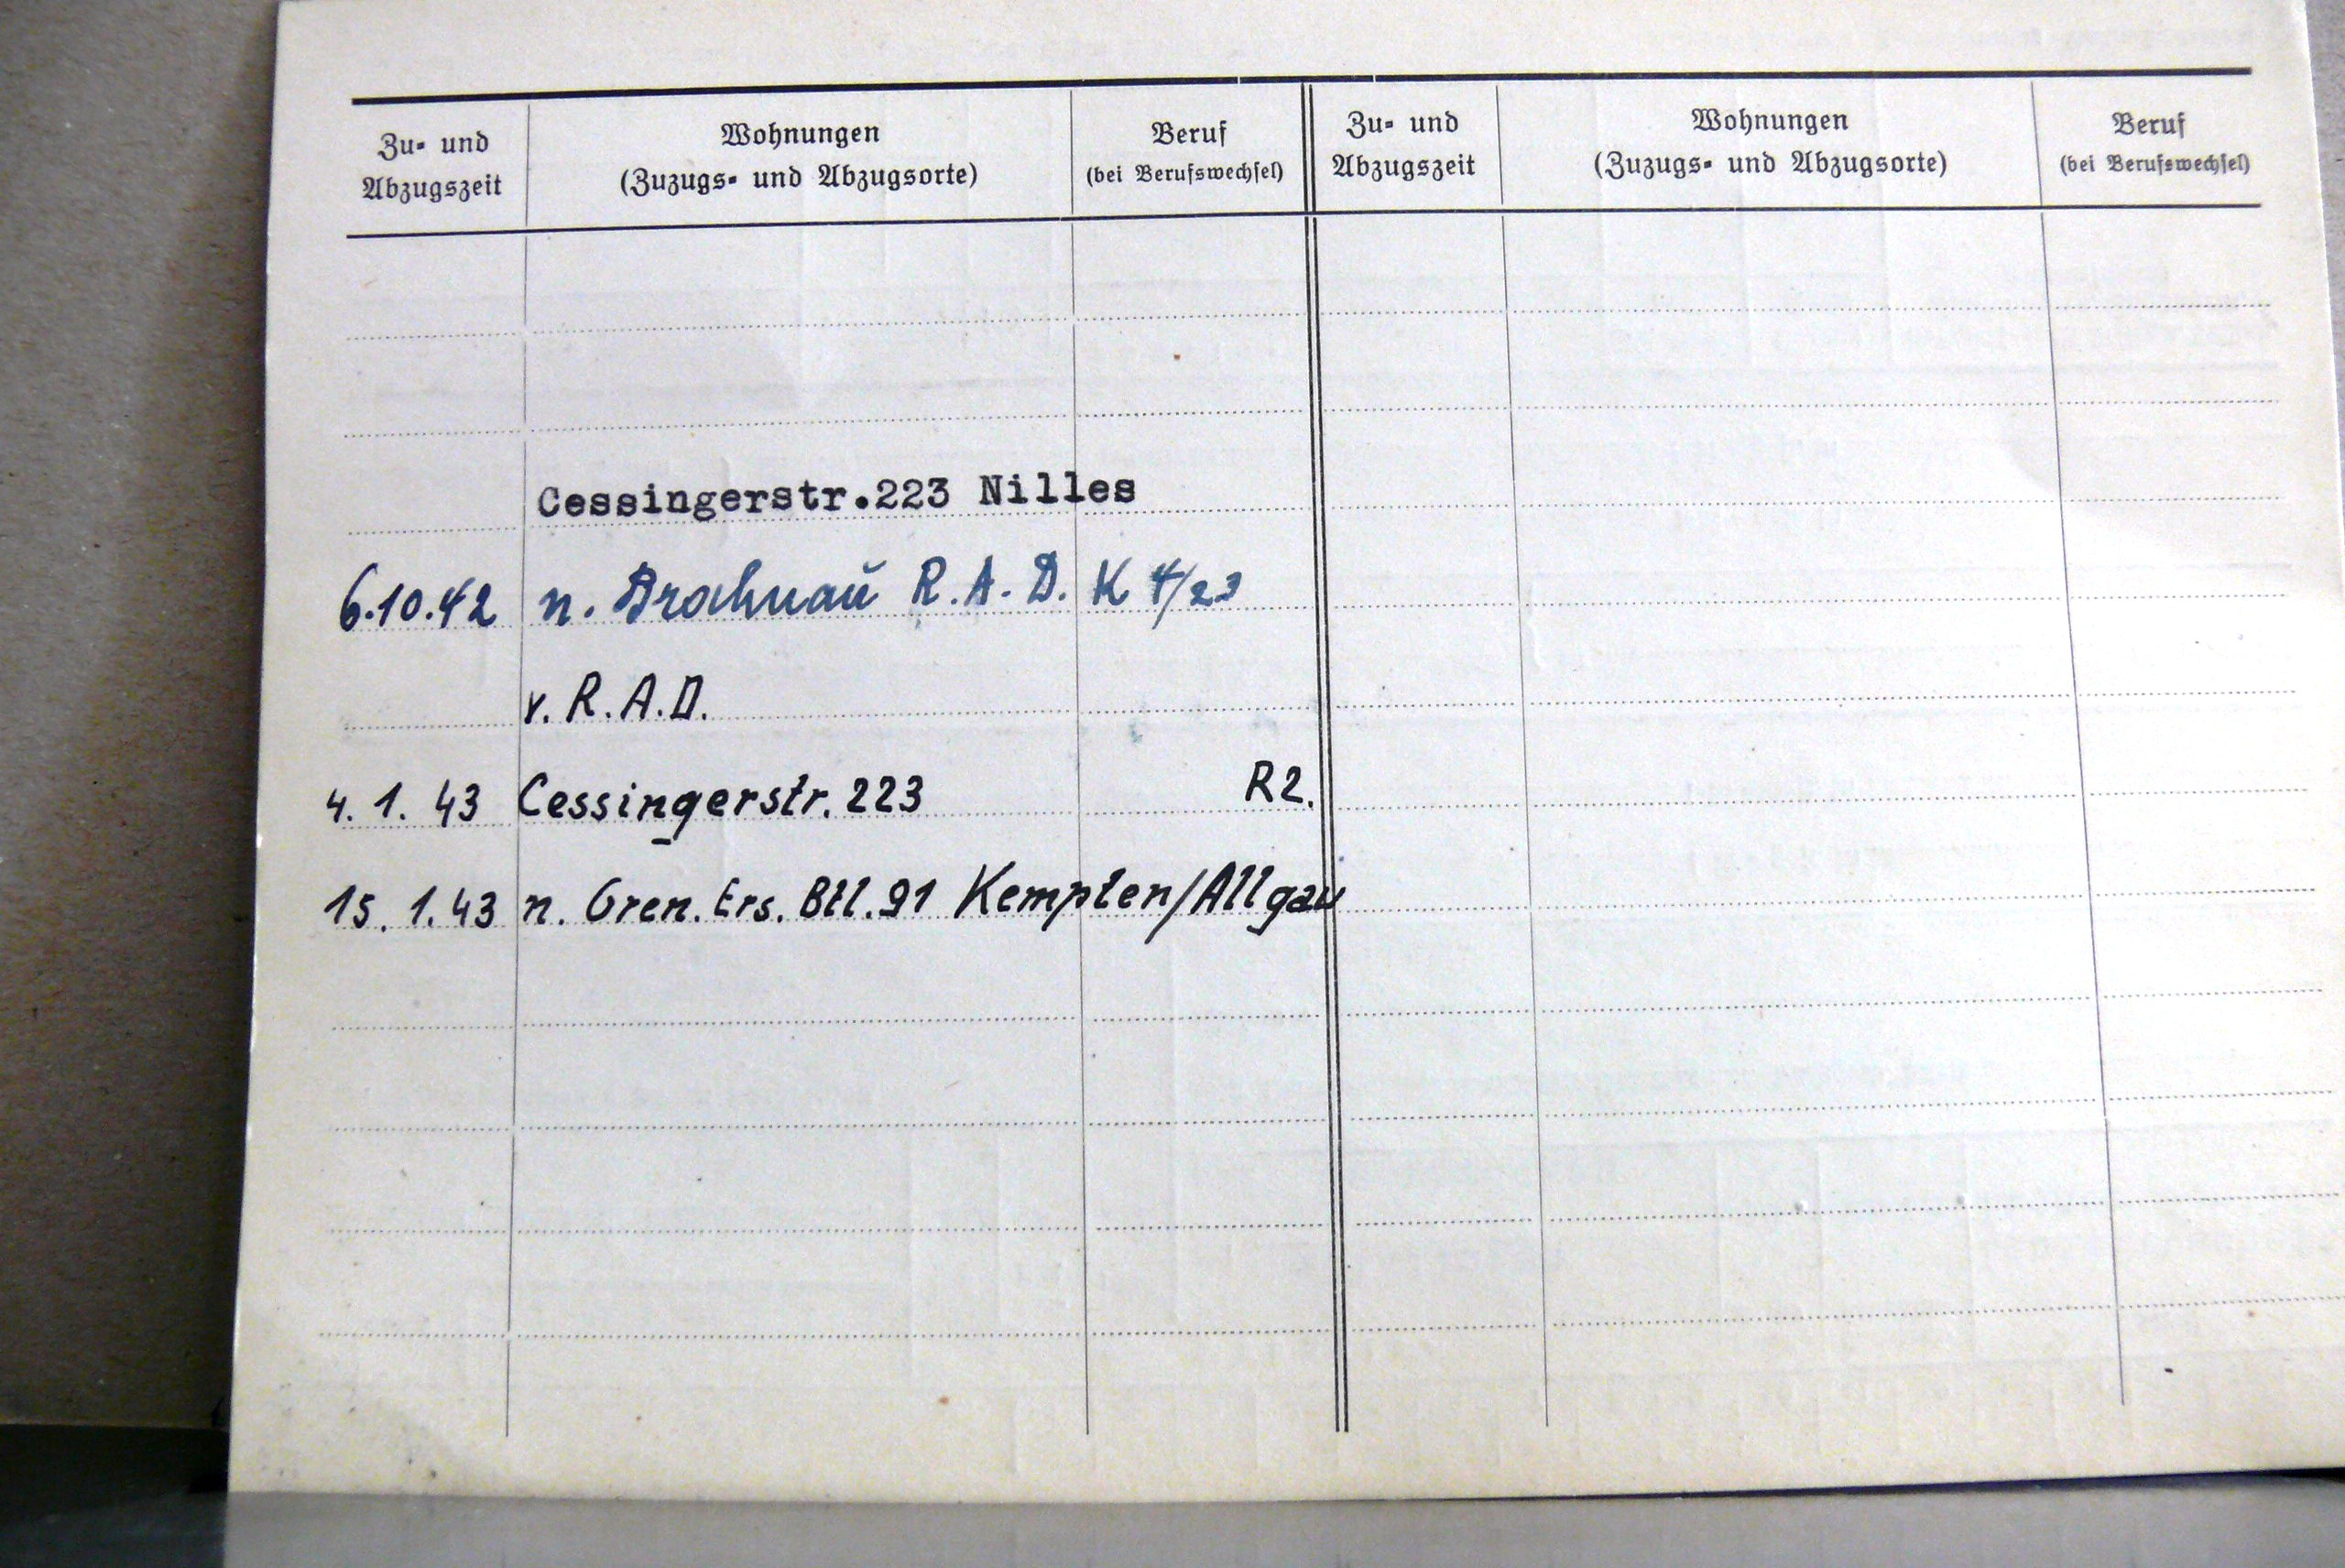 Zu- und
Abzugszeit
Wohnungen
(Zuzugs- und Abzugsorte)
Beruf
(bei Berufswechsel)
Zu- und
Abzugszeit
Wohnungen
(Zuzugs- und Abzugsorte)
Beruf
(bei Berufswechsel)
Cessingerstr.223 Nilles
6.10.42 n. Brahnau R.A.D. K 4/23
v. R.A.D.
4. 1. 43 Cessingerstr. 223 R2.
15. 1. 43 n. Gren. Ers. Btl. 91 Kempten/Allgau